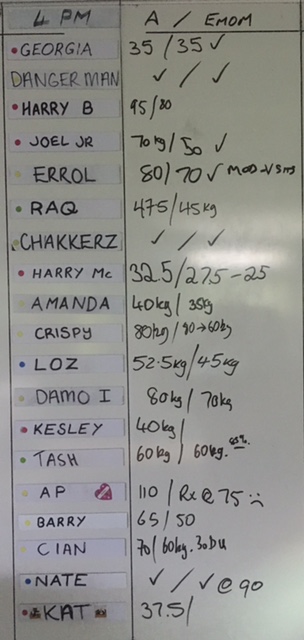 4 PM A / EMOM
GEORGIA 35 / 35 ✓
DANGERMAN ✓ / ✓
HARRY B 95/80
JOEL JR 70kg / 50 ✓
ERROL 80 / 70 ✓
RAQ 47.5 / 45kg
CHAKKERZ ✓ / ✓
HARRY Mc 32.5 / 27.5 - 25
AMANDA 40kg / 35kg
CRISPY 80kg / 90→60kg
LOZ 52.5kg / 45kg
DAMO I 80kg / 70kg
KESLEY 40kg /
TASH 60kg / 60kg.
AP 110 / Rx @ 75
BARRY 65 / 50
CIAN 70 / 60kg. 30DU
NATE ✓ / ✓ @ 90
KAT 37.5 /